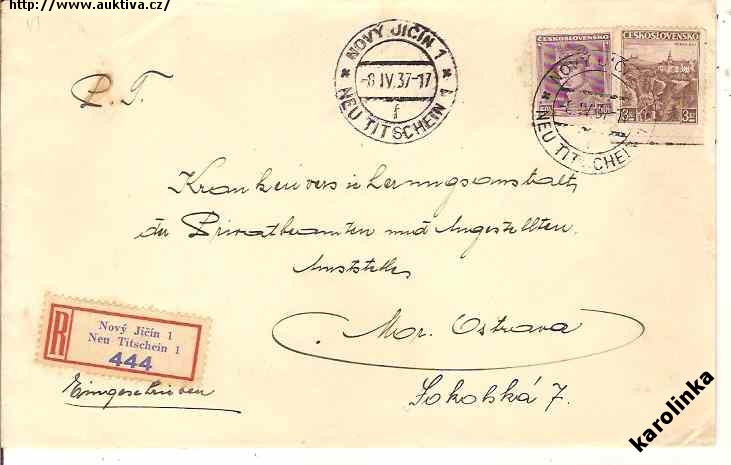 http://www.auktiva.cz/
P. T.
NOVÝ JIČÍN 1
-8.IV.37-17
f
* NEU TITSCHEIN 1 *
ČESKOSLOVENSKO
ČESKOSLOVENSKO
3
3
NOVÝ JIČ
IV.37-1
* NEU TITSCHEIN
Krankenversicherungsanstalt,
der Privatbeamten und Angestellten.
Amtsstelle
Mor. Ostrava
Sokolská 7.
R
Nový Jičín 1
Neu Titschein 1
444
Eingeschrieben
karolinka